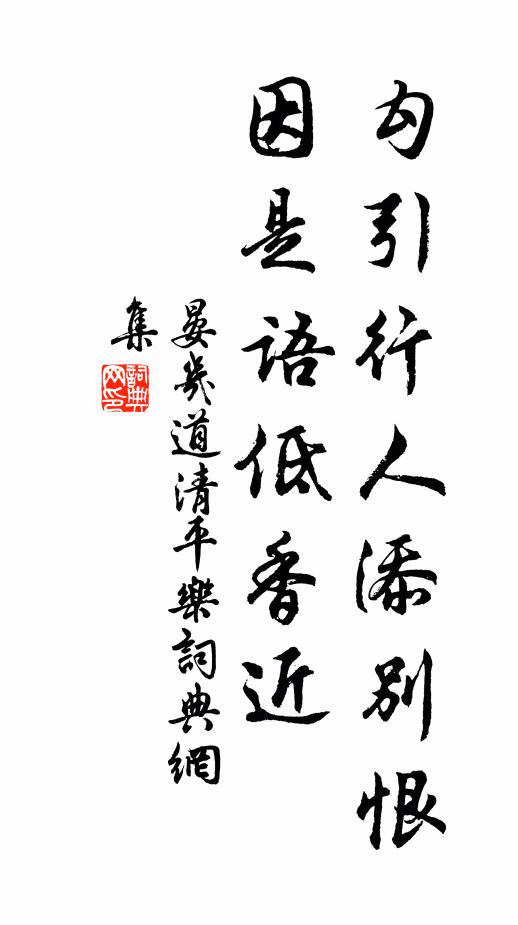 勾引行人添別恨
因是語低香近
晏幾道清平樂詞典網
集
詞典
网印